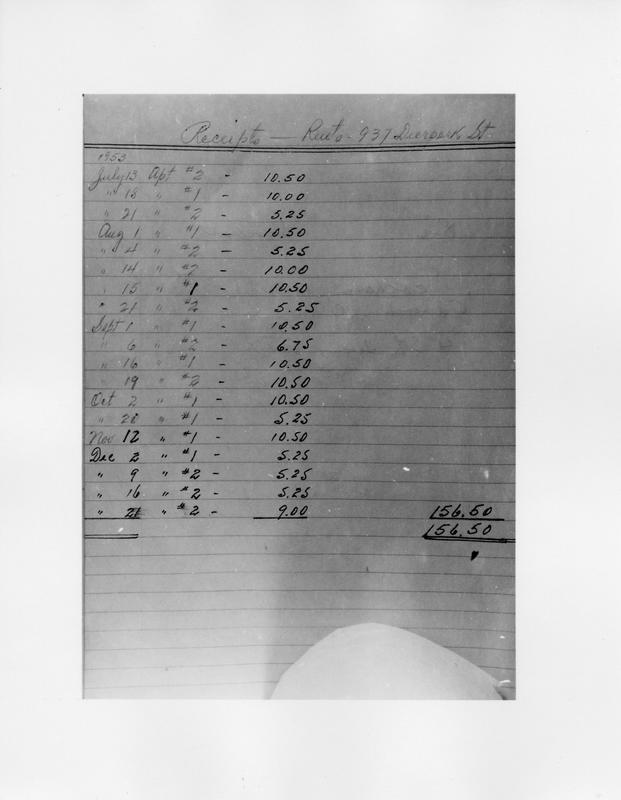 Receipts — Rents - 937 Deerpark St.
1953
July 13 Apt #2 - 10.50
" 18 " #1 - 10.00
" 21 " #2 - 5.25
Aug 1 " #1 - 10.50
" 4 " #2 - 5.25
" 14 " #2 - 10.00
" 15 " #1 - 10.50
" 21 " #2 - 5.25
Sept 1 " #1 - 10.50
" 6 " #2 - 6.75
" 16 " #1 - 10.50
" 19 " #2 - 10.50
Oct 2 " #1 - 10.50
" " #1 - 5.25
Nov 12 " #1 - 10.50
Dec 2 " #1 - 5.25
" 9 " #2 - 5.25
" 16 " #2 - 5.25
" 21 " #2 - 9.00 156.50
156.50